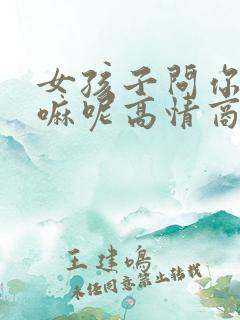 女孩子问你
嘛呢高情商
王建鸣
未经同意禁止转载